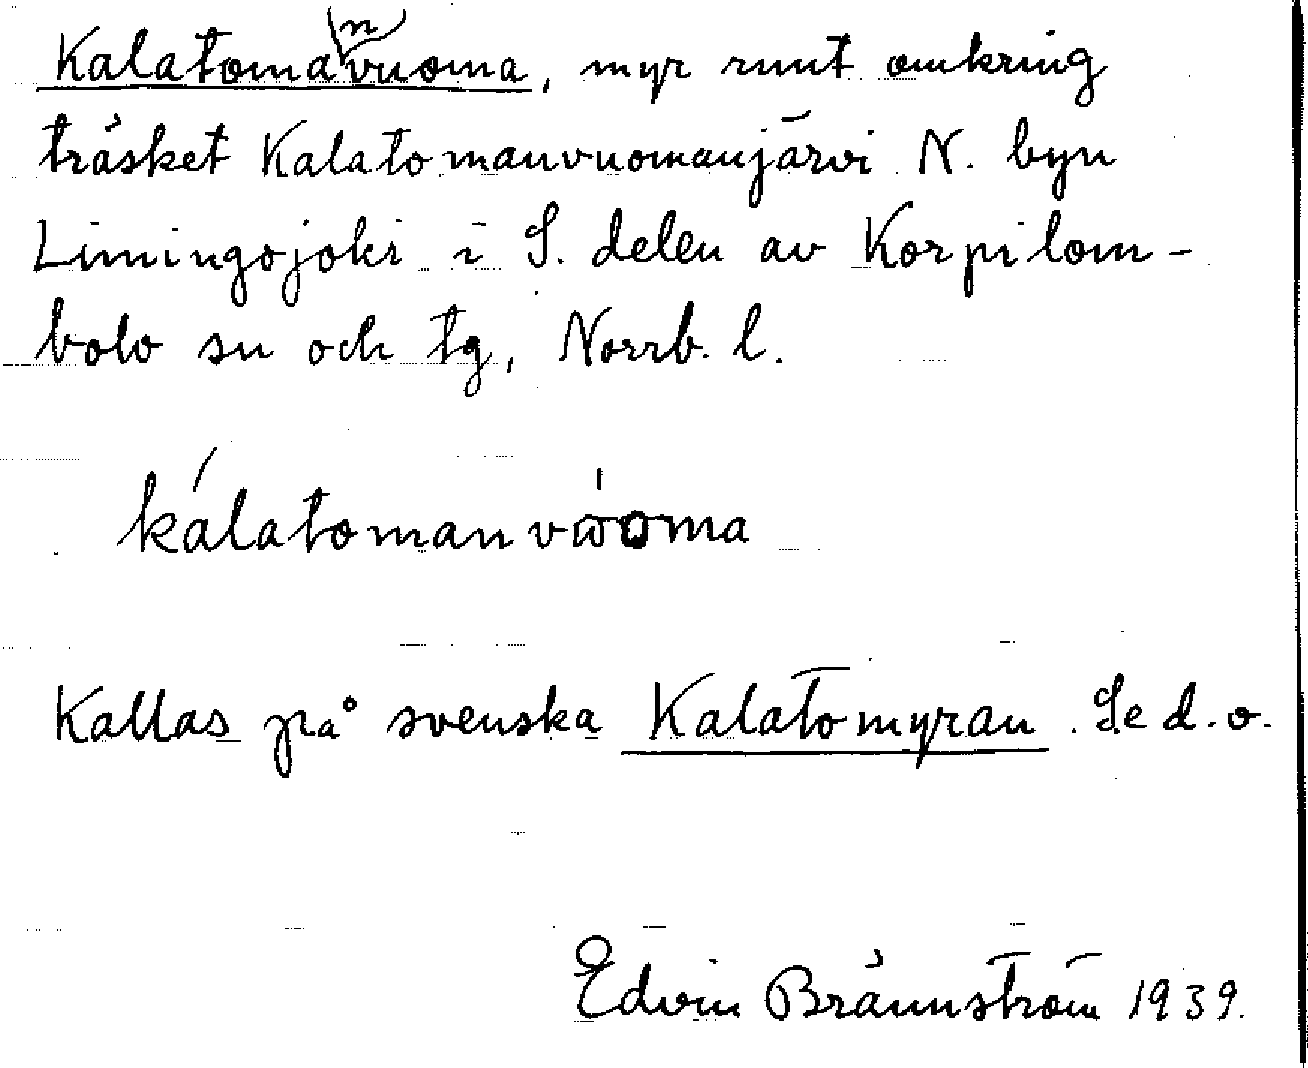 Kalatomanvuoma, myr runt omkring
träsket Kalatomanvuomanjärvi N. byn
Limingojoki i S. delen av Korpilom-
bolo sn och tg, Norrb. l.
kálatomanvẃoma
Kallas på svenska Kalatomyran. Se d.o.
Edvin Brännström 1939.